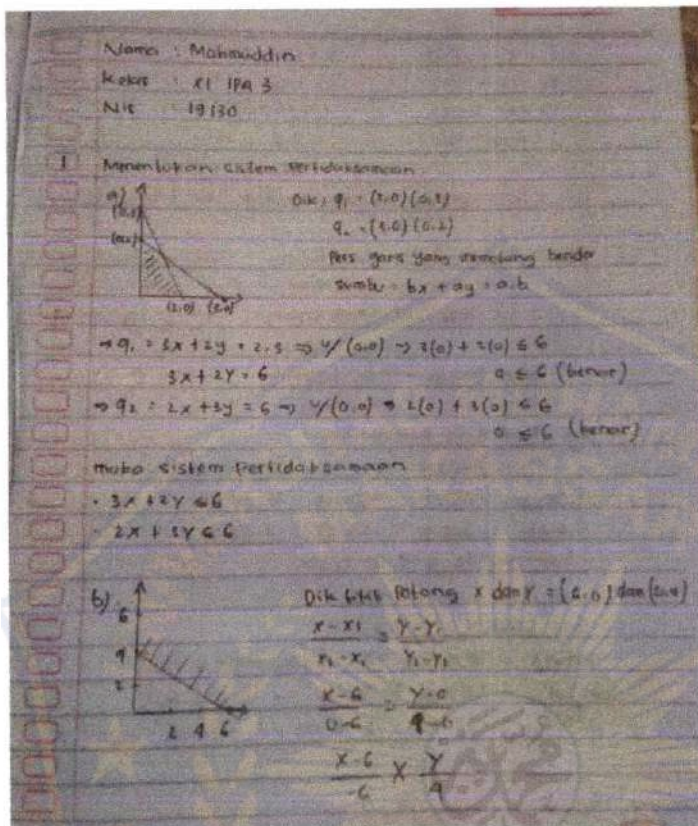 Nama : Mahmuddin
Kelas : XI IPA 3
Nis : 19130
1 Menentukan sistem Pertidaksamaan
a)
(0,3)
(0,2)
(2,0) (3,0)
Dik : g₁ = (2,0) (0,3)
g₂ = (3,0) (0,2)
Pers garis yang memotong
sumbu = bx + ay = a.b
→ g₁ = 3x + 2y = 2.3 → y/ (0,0) → 3(0) + 2(0) ≤ 6
3x + 2y = 6
0 ≤ 6 (benar)
→ g₂ = 2x + 3y = 6 → y/ (0,0) → 2(0) + 3(0) ≤ 6
0 ≤ 6 (benar)
maka sistem Pertidaksamaan
- 3x + 2y ≤ 6
- 2x + 3y ≤ 6
b)
6
4
2
2 4 6
Dik titik Potong x dan y = (6,0) dan
x - x1 / x2 - x1 = y - y1 / y2 - y1
x - 6 / 0 - 6 = y - 0 / 4 - 0
x - 6 / -6 X y / 4